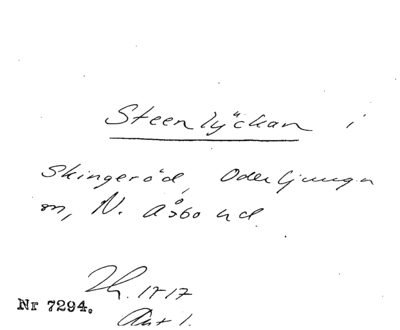 Steenlyckan i
Skingeröd, Oderljunga
sn, N. Åsbo hd.
Nr 7294.
Akt 1.